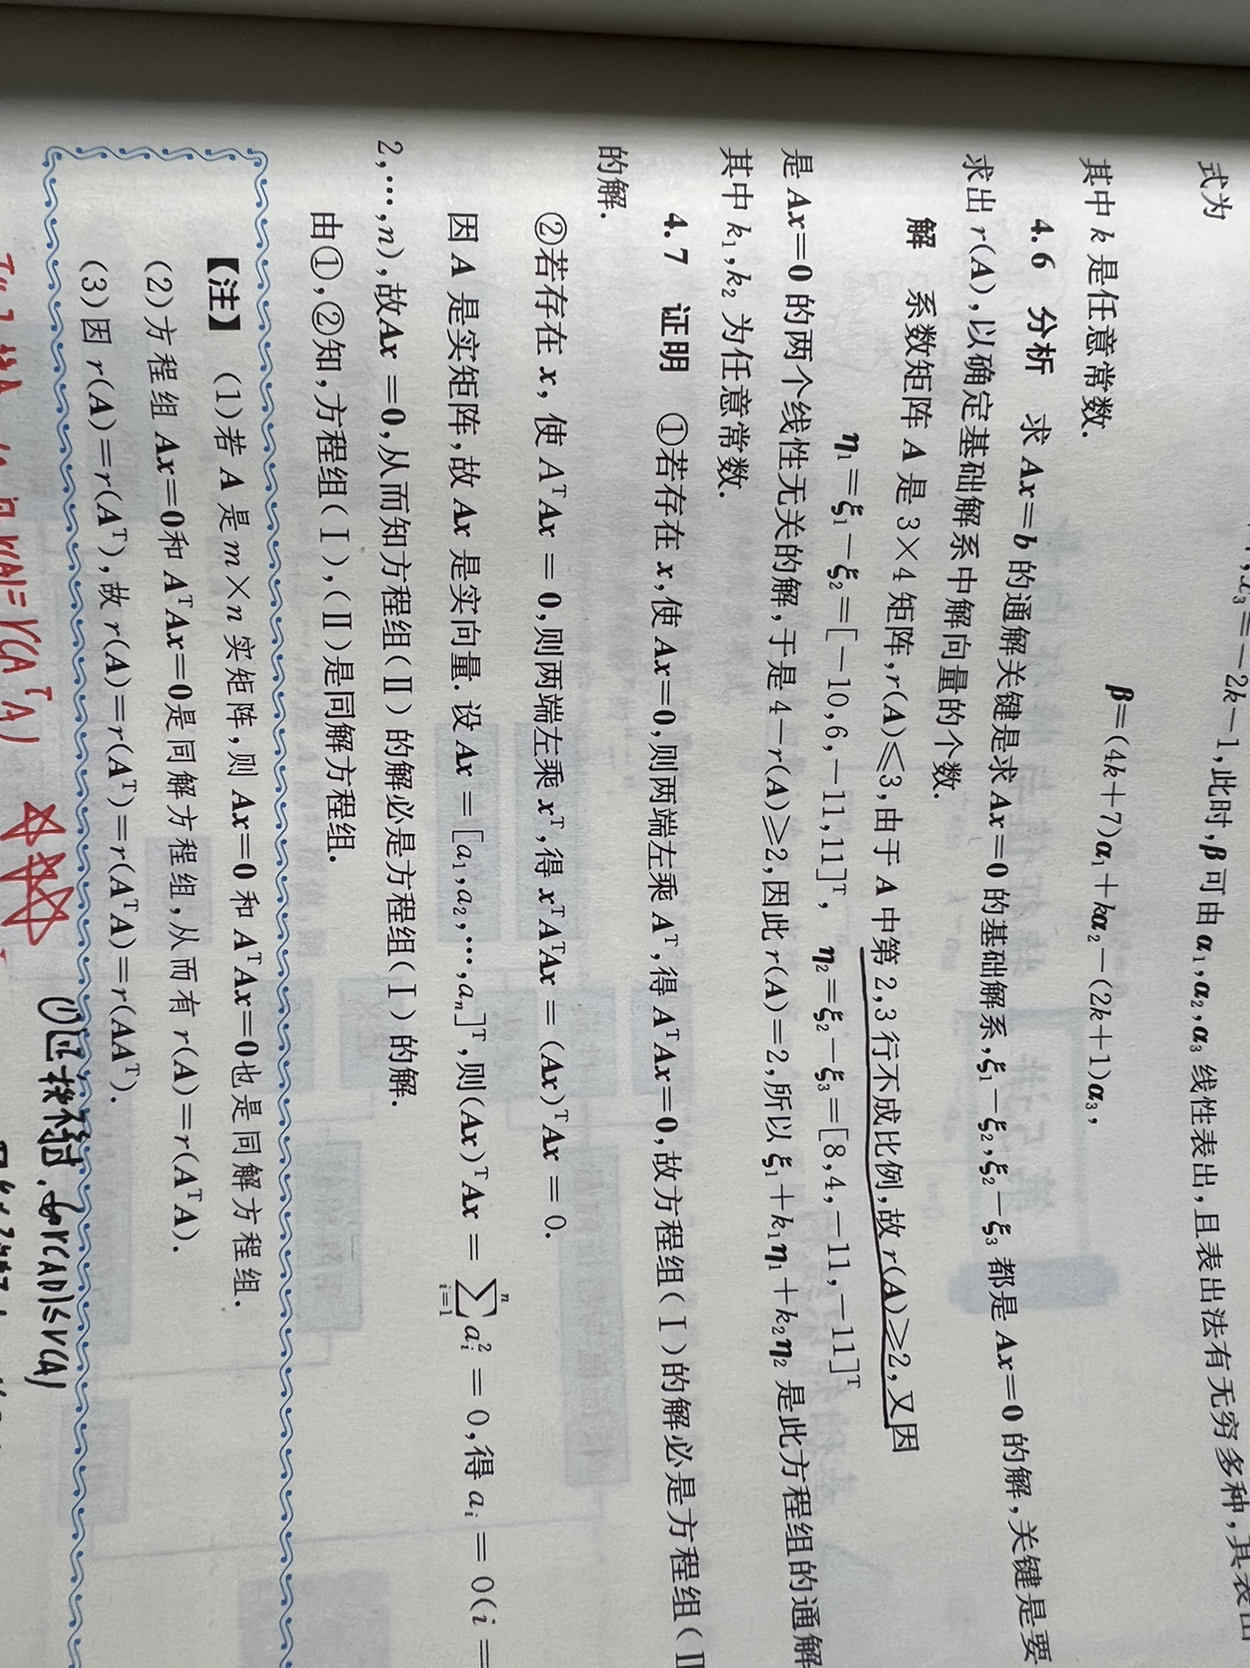 式为
,x₃=-2k-1,此时,β可由 α₁,α₂,α₃ 线性表出,且表出法有无穷多种,其表出
β=(4k+7)α₁+kα₂-(2k+1)α₃,
其中 k 是任意常数.
4.6 分析 求 Ax=b 的通解关键是求 Ax=0 的基础解系,ξ₁-ξ₂,ξ₂-ξ₃ 都是 Ax=0 的解,关键是要
求出 r(A),以确定基础解系中解向量的个数.
解 系数矩阵 A 是 3×4 矩阵,r(A)≤3,由于 A 中第 2,3 行不成比例,故 r(A)≥2,又因
η₁=ξ₁-ξ₂=[-10,6,-11,11]ᵀ, η₂=ξ₂-ξ₃=[8,4,-11,-11]ᵀ
是 Ax=0 的两个线性无关的解,于是 4-r(A)≥2,因此 r(A)=2,所以 ξ₁+k₁η₁+k₂η₂ 是此方程组的通解
其中 k₁,k₂ 为任意常数.
4.7 证明 ①若存在 x,使 Ax=0,则两端左乘 Aᵀ,得 AᵀAx=0,故方程组(Ⅰ)的解必是方程组(Ⅱ
的解.
②若存在 x,使 AᵀAx=0,则两端左乘 xᵀ,得 xᵀAᵀAx=(Ax)ᵀAx=0.
因 A 是实矩阵,故 Ax 是实向量.设 Ax=[a₁,a₂,⋯,aₙ]ᵀ,则(Ax)ᵀAx=∑ⁿᵢ₌₁ aᵢ²=0,得 aᵢ=0(i=
2,⋯,n),故Ax=0,从而知方程组(Ⅱ)的解必是方程组(Ⅰ)的解.
由①,②知,方程组(Ⅰ),(Ⅱ)是同解方程组.
【注】 (1)若 A 是 m×n 实矩阵,则 Ax=0 和 AᵀAx=0也是同解方程组.
(2)方程组 Ax=0和 AᵀAx=0是同解方程组,从而有 r(A)=r(AᵀA).
(3)因 r(A)=r(Aᵀ),故 r(A)=r(Aᵀ)=r(AᵀA)=r(AAᵀ).
r(A)=r(AᵀA)